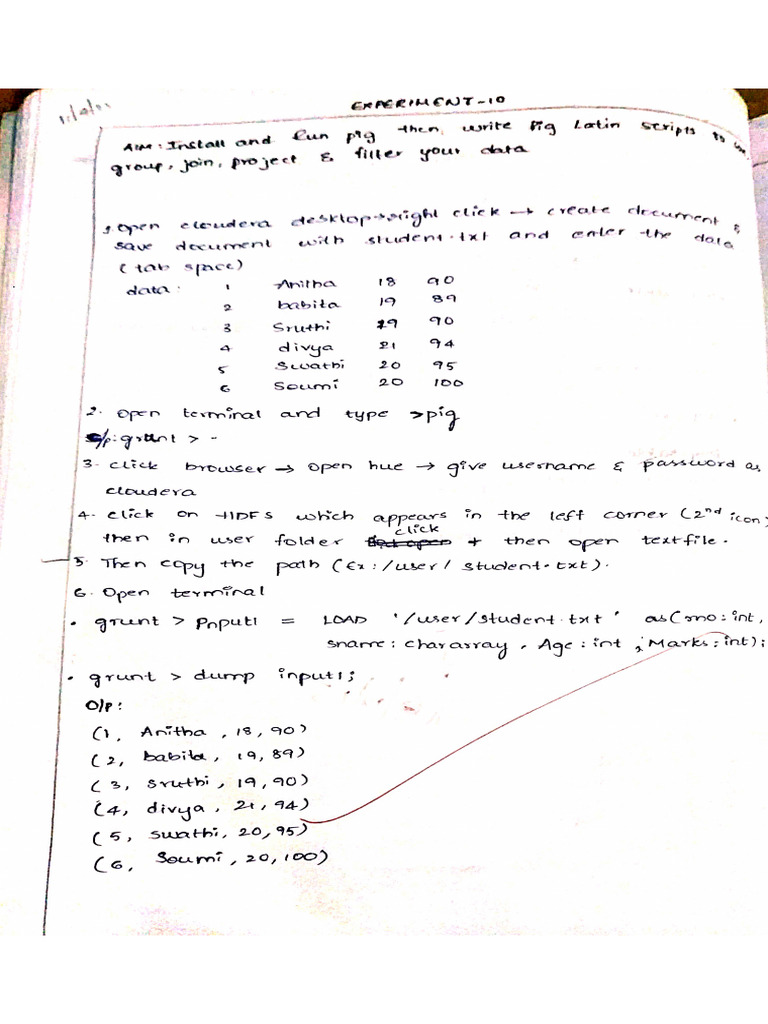 EXPERIMENT-10
AIM: Install and Run pig then, write Pig Latin scripts to
group, join, project & filter your data
1. Open cloudera desktop→right click → create document &
save document with student.txt and enter the data
(tab space)
data: 1 Anitha 18 90
2 babita 19 89
3 Sruthi 19 90
4 divya 21 94
5 Swathi 20 95
6 Soumi 20 100
2. Open terminal and type >pig
o/p: grunt > -
3. click browser → open hue → give username & password as
cloudera
4. click on HDFS which appears in the left corner (2nd icon)
then in user folder click + then open textfile.
5. Then copy the path (Ex: /user/ student.txt).
6. Open terminal
• grunt > Input1 = LOAD '/user/student.txt' as(rno:int,
sname: chararray, Age: int, Marks:int);
• grunt > dump input1;
O/P:
(1, Anitha, 18, 90)
(2, babita, 19, 89)
(3, sruthi, 19, 90)
(4, divya, 21, 94)
(5, swathi, 20, 95)
(6, Soumi, 20, 100)